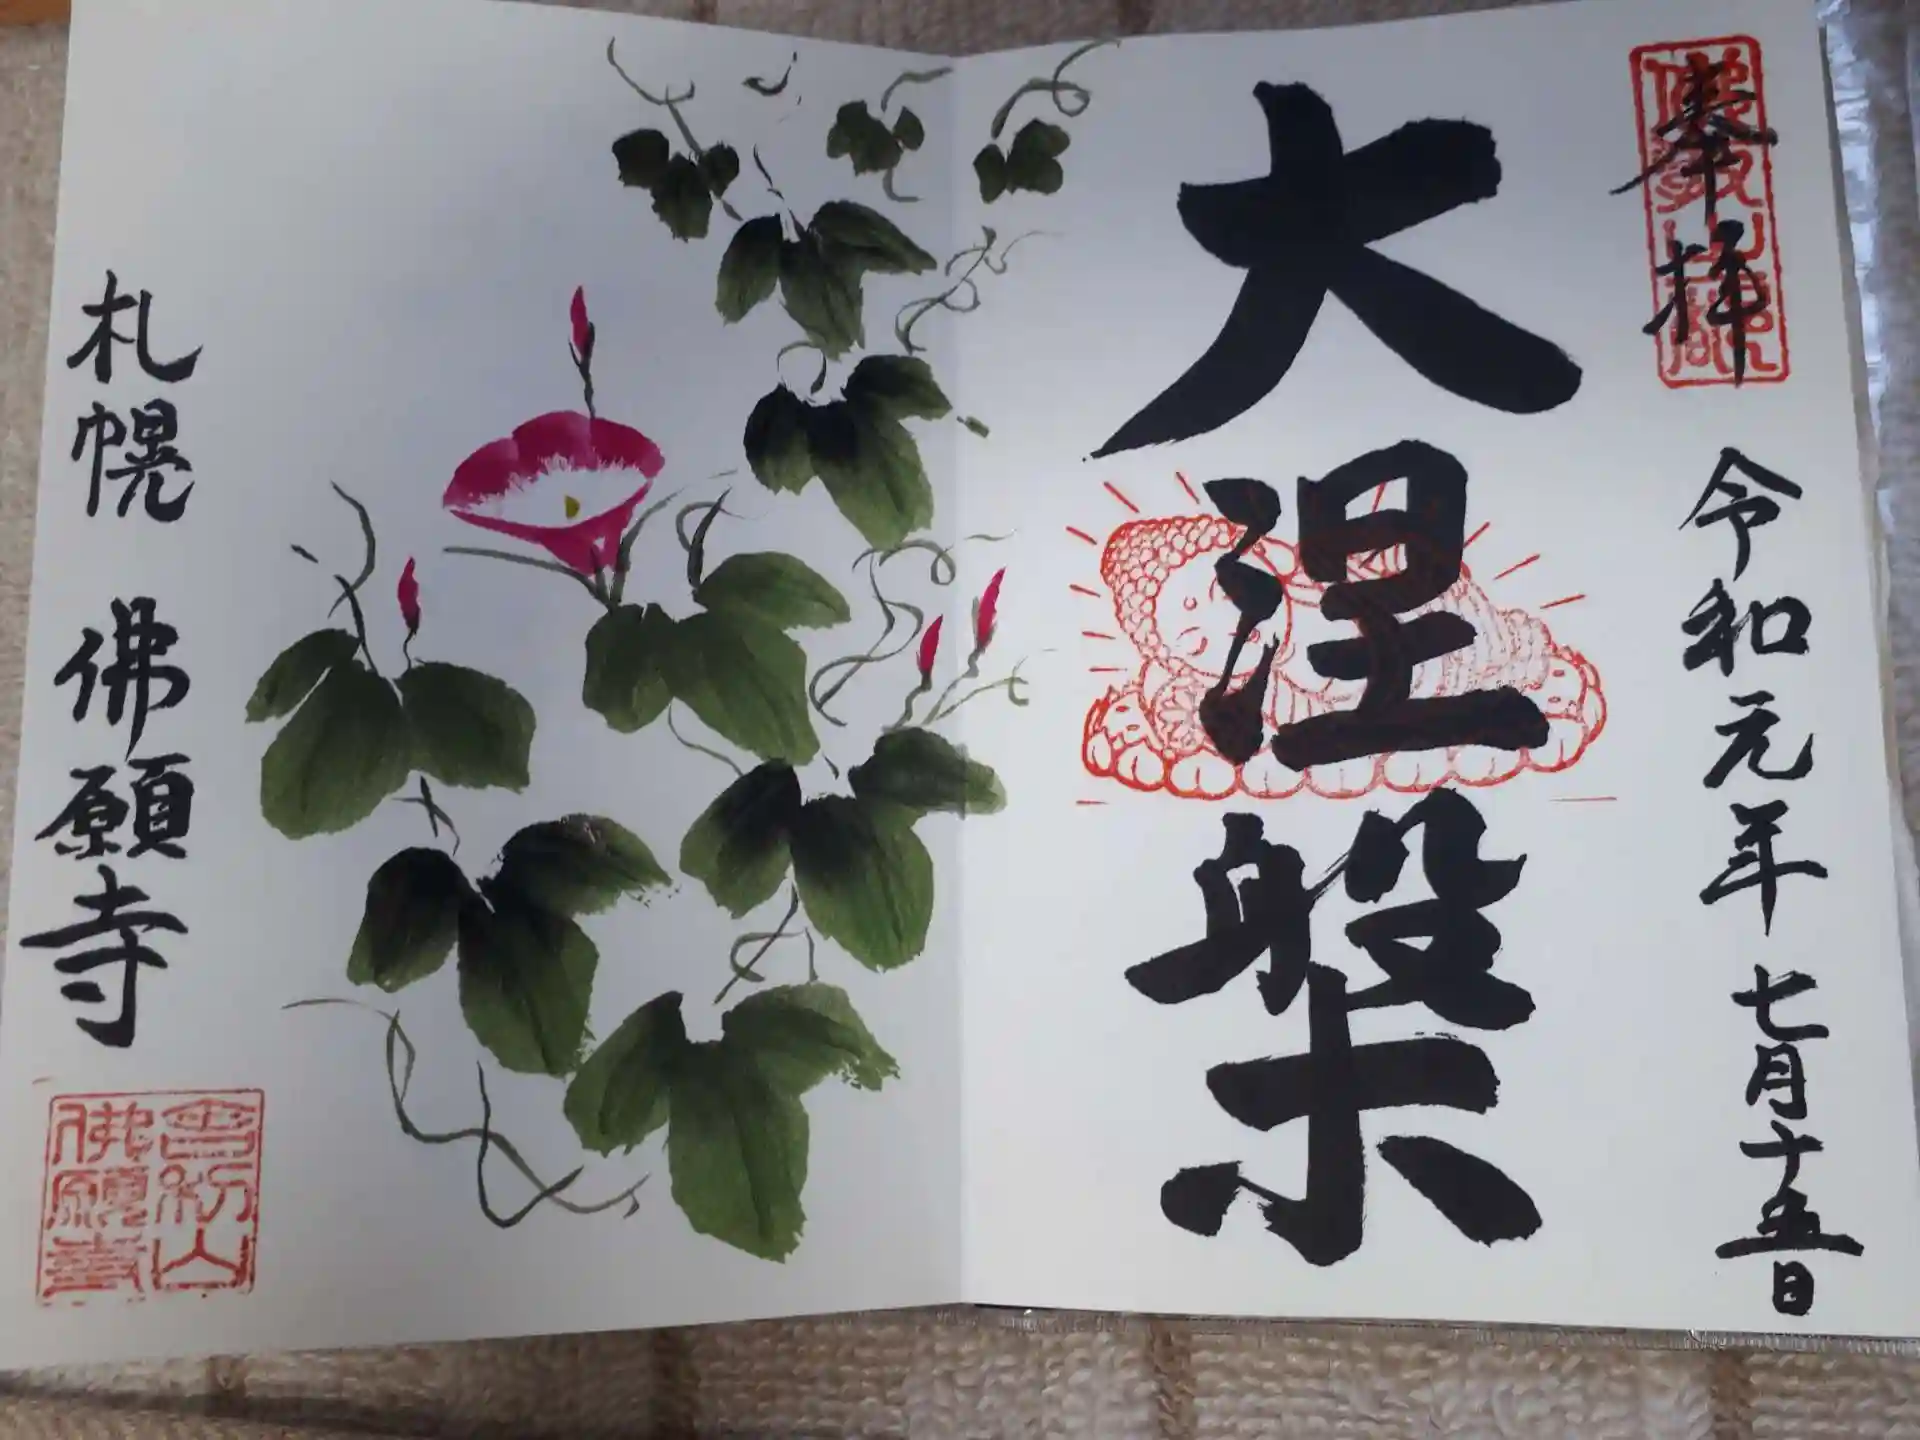 奉拝
令和元年七月十五日
大涅槃
札幌 佛願寺
佛願寺